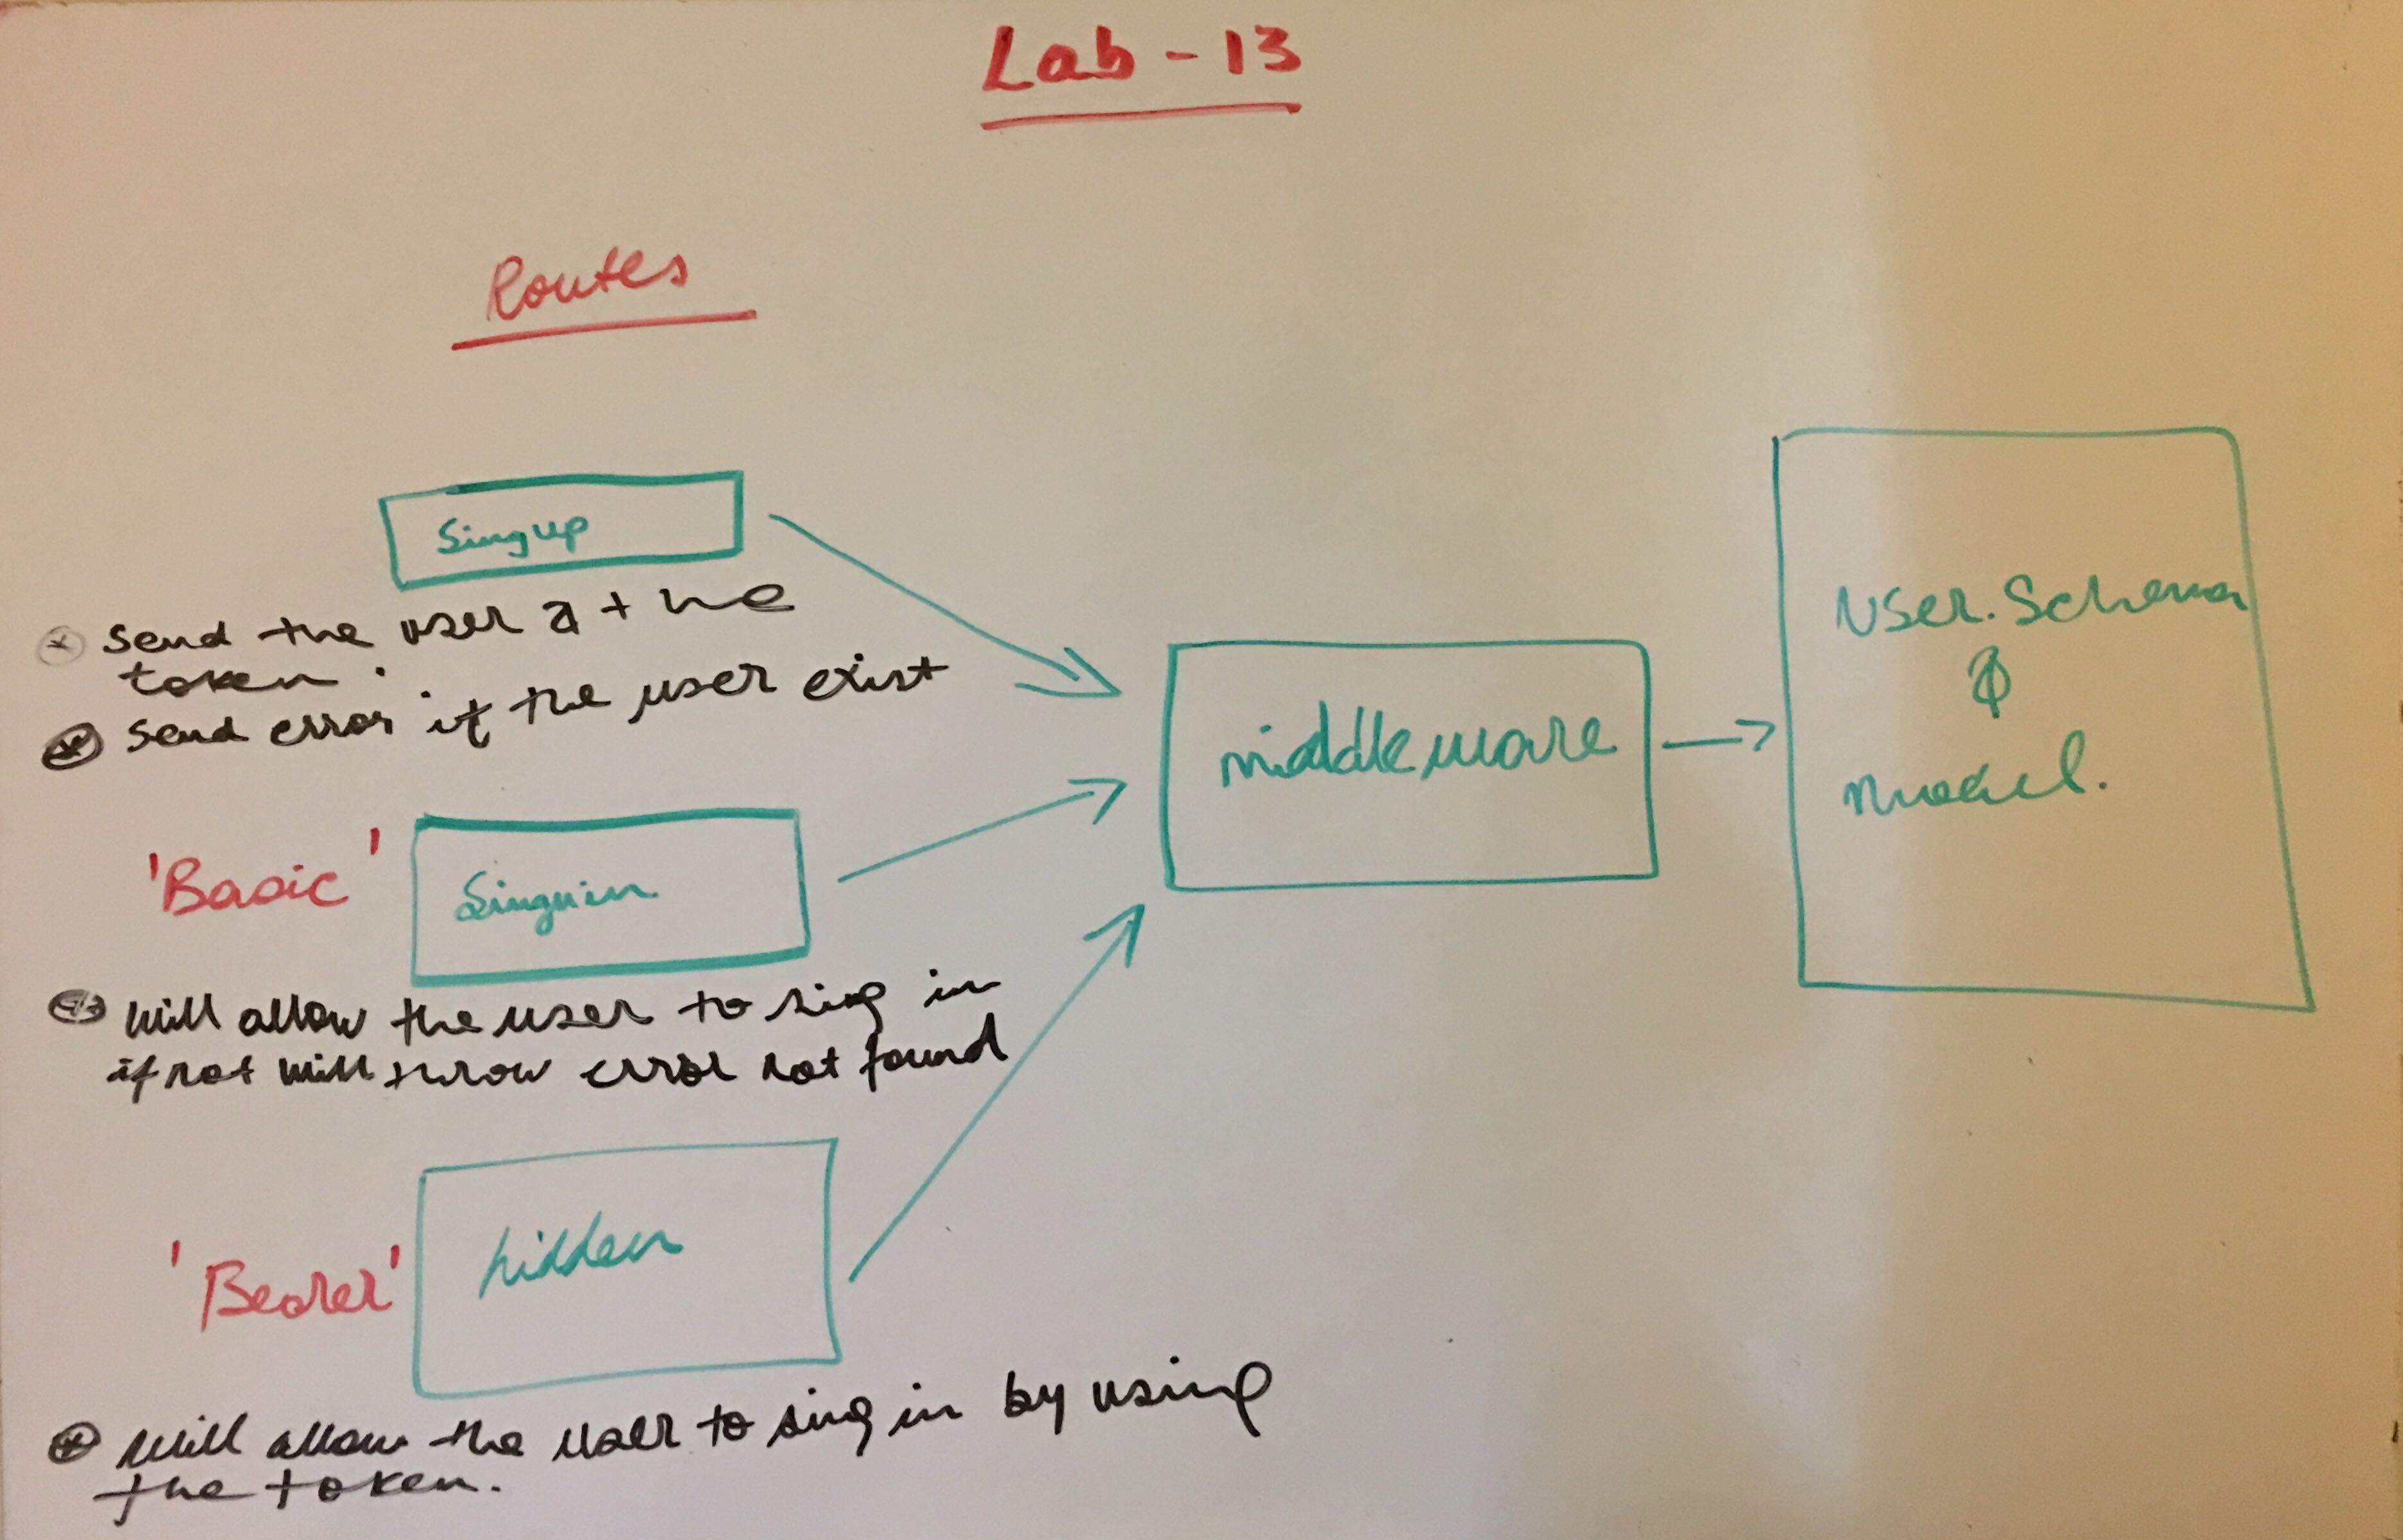 Lab - 13
Routes
Singup
send the user & the
token.
send error if the user exist
'Basic'
Singin
will allow the user to sing in
if not will throw error not found
'Bearer'
hidden
will allow the user to sing in by using
the token.
middleware
User.Schema
&
model.